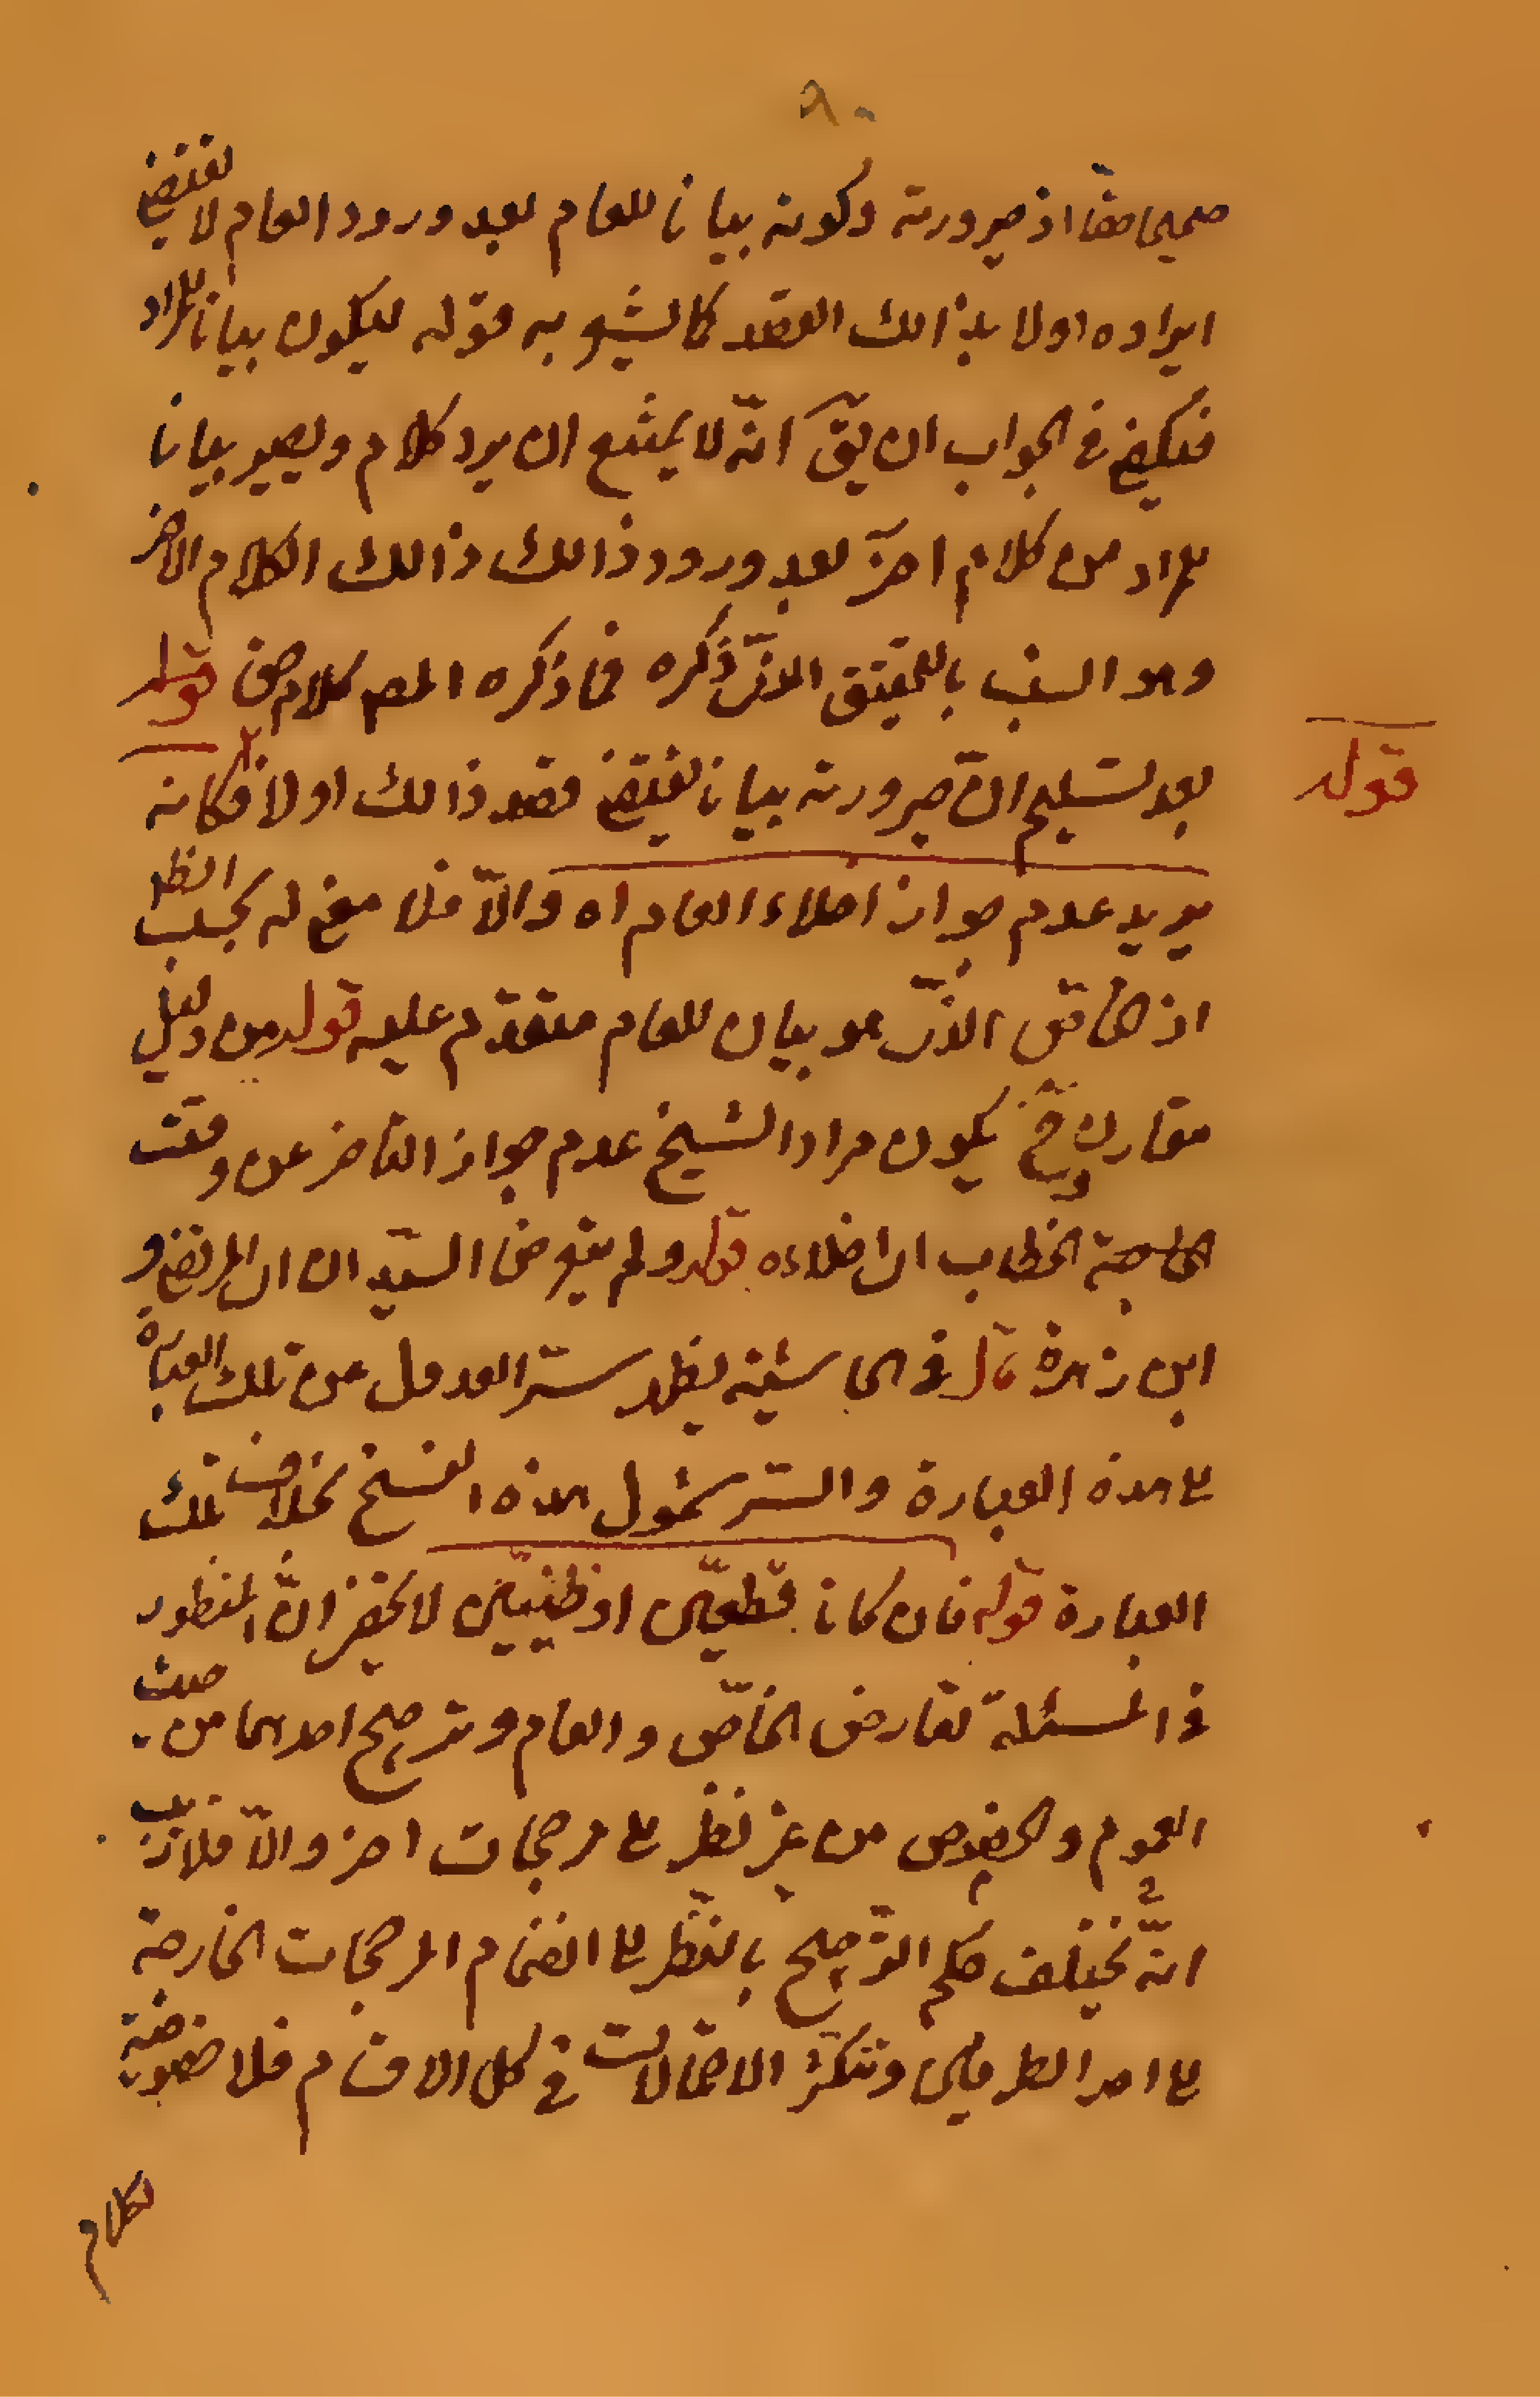 ٨٠
صحيحا حقا اذ صيرورته وكونه بيانا للعام بعد ورود العام لا يقتضى
ايراده اولا بذالك القصد كما يشير به قوله ليكون بيانا لمراد
فيكفى فى الجواب ان يقٓ انّه لا يمتنع ان يرد كلام ويصير بيانا
لمراد من كلام اخر بعد ورود ذالك ذالك الكلام الاخر
وهو انسب بالتحقيق الذى ذكره فما ذكره المصـ كلام حق قوله
قوله
بعد تسليم انّ صيرورته بيانا يقتضى قصد ذالك اولا فكانه
يريد عدم جواز اخلاء العام اه والّا فلا معنى له بحسب الظ
اذ الخاص الذى هو بيان للعام متقدّم عليه قوله من دليل
مقارن وحٓ يكون مراد الشيخ عدم جواز التاخر عن وقت
الحاجة الخطاب اى اخلاءه قوله ولم يتعرض السيّد ان اى المرتضى و
ابن زهرة قال فى الحاشية يظهر سرّ العدول عن تلك العبارة
الى هذه العبارة والسّر شمول هذه النسخ بخلاف تلك
العبارة قوله فان كانا قطعيّين او ظنّيين لا يخفى انّ المنظور
فى المسئلة تعارض الخاصّ والعام وترجيح احدهما من حيث
العموم والخصوص من غير نظر الى مرجحات اخر والّا فلا ريب
فى انّه يختلف حكم الترجيح بالنّظر الى انضمام المرجحات الخارجة
الى احد الطرفين وتتكثر الاحتمالات فى كل الاقسام فلا خصوصية
لكلام